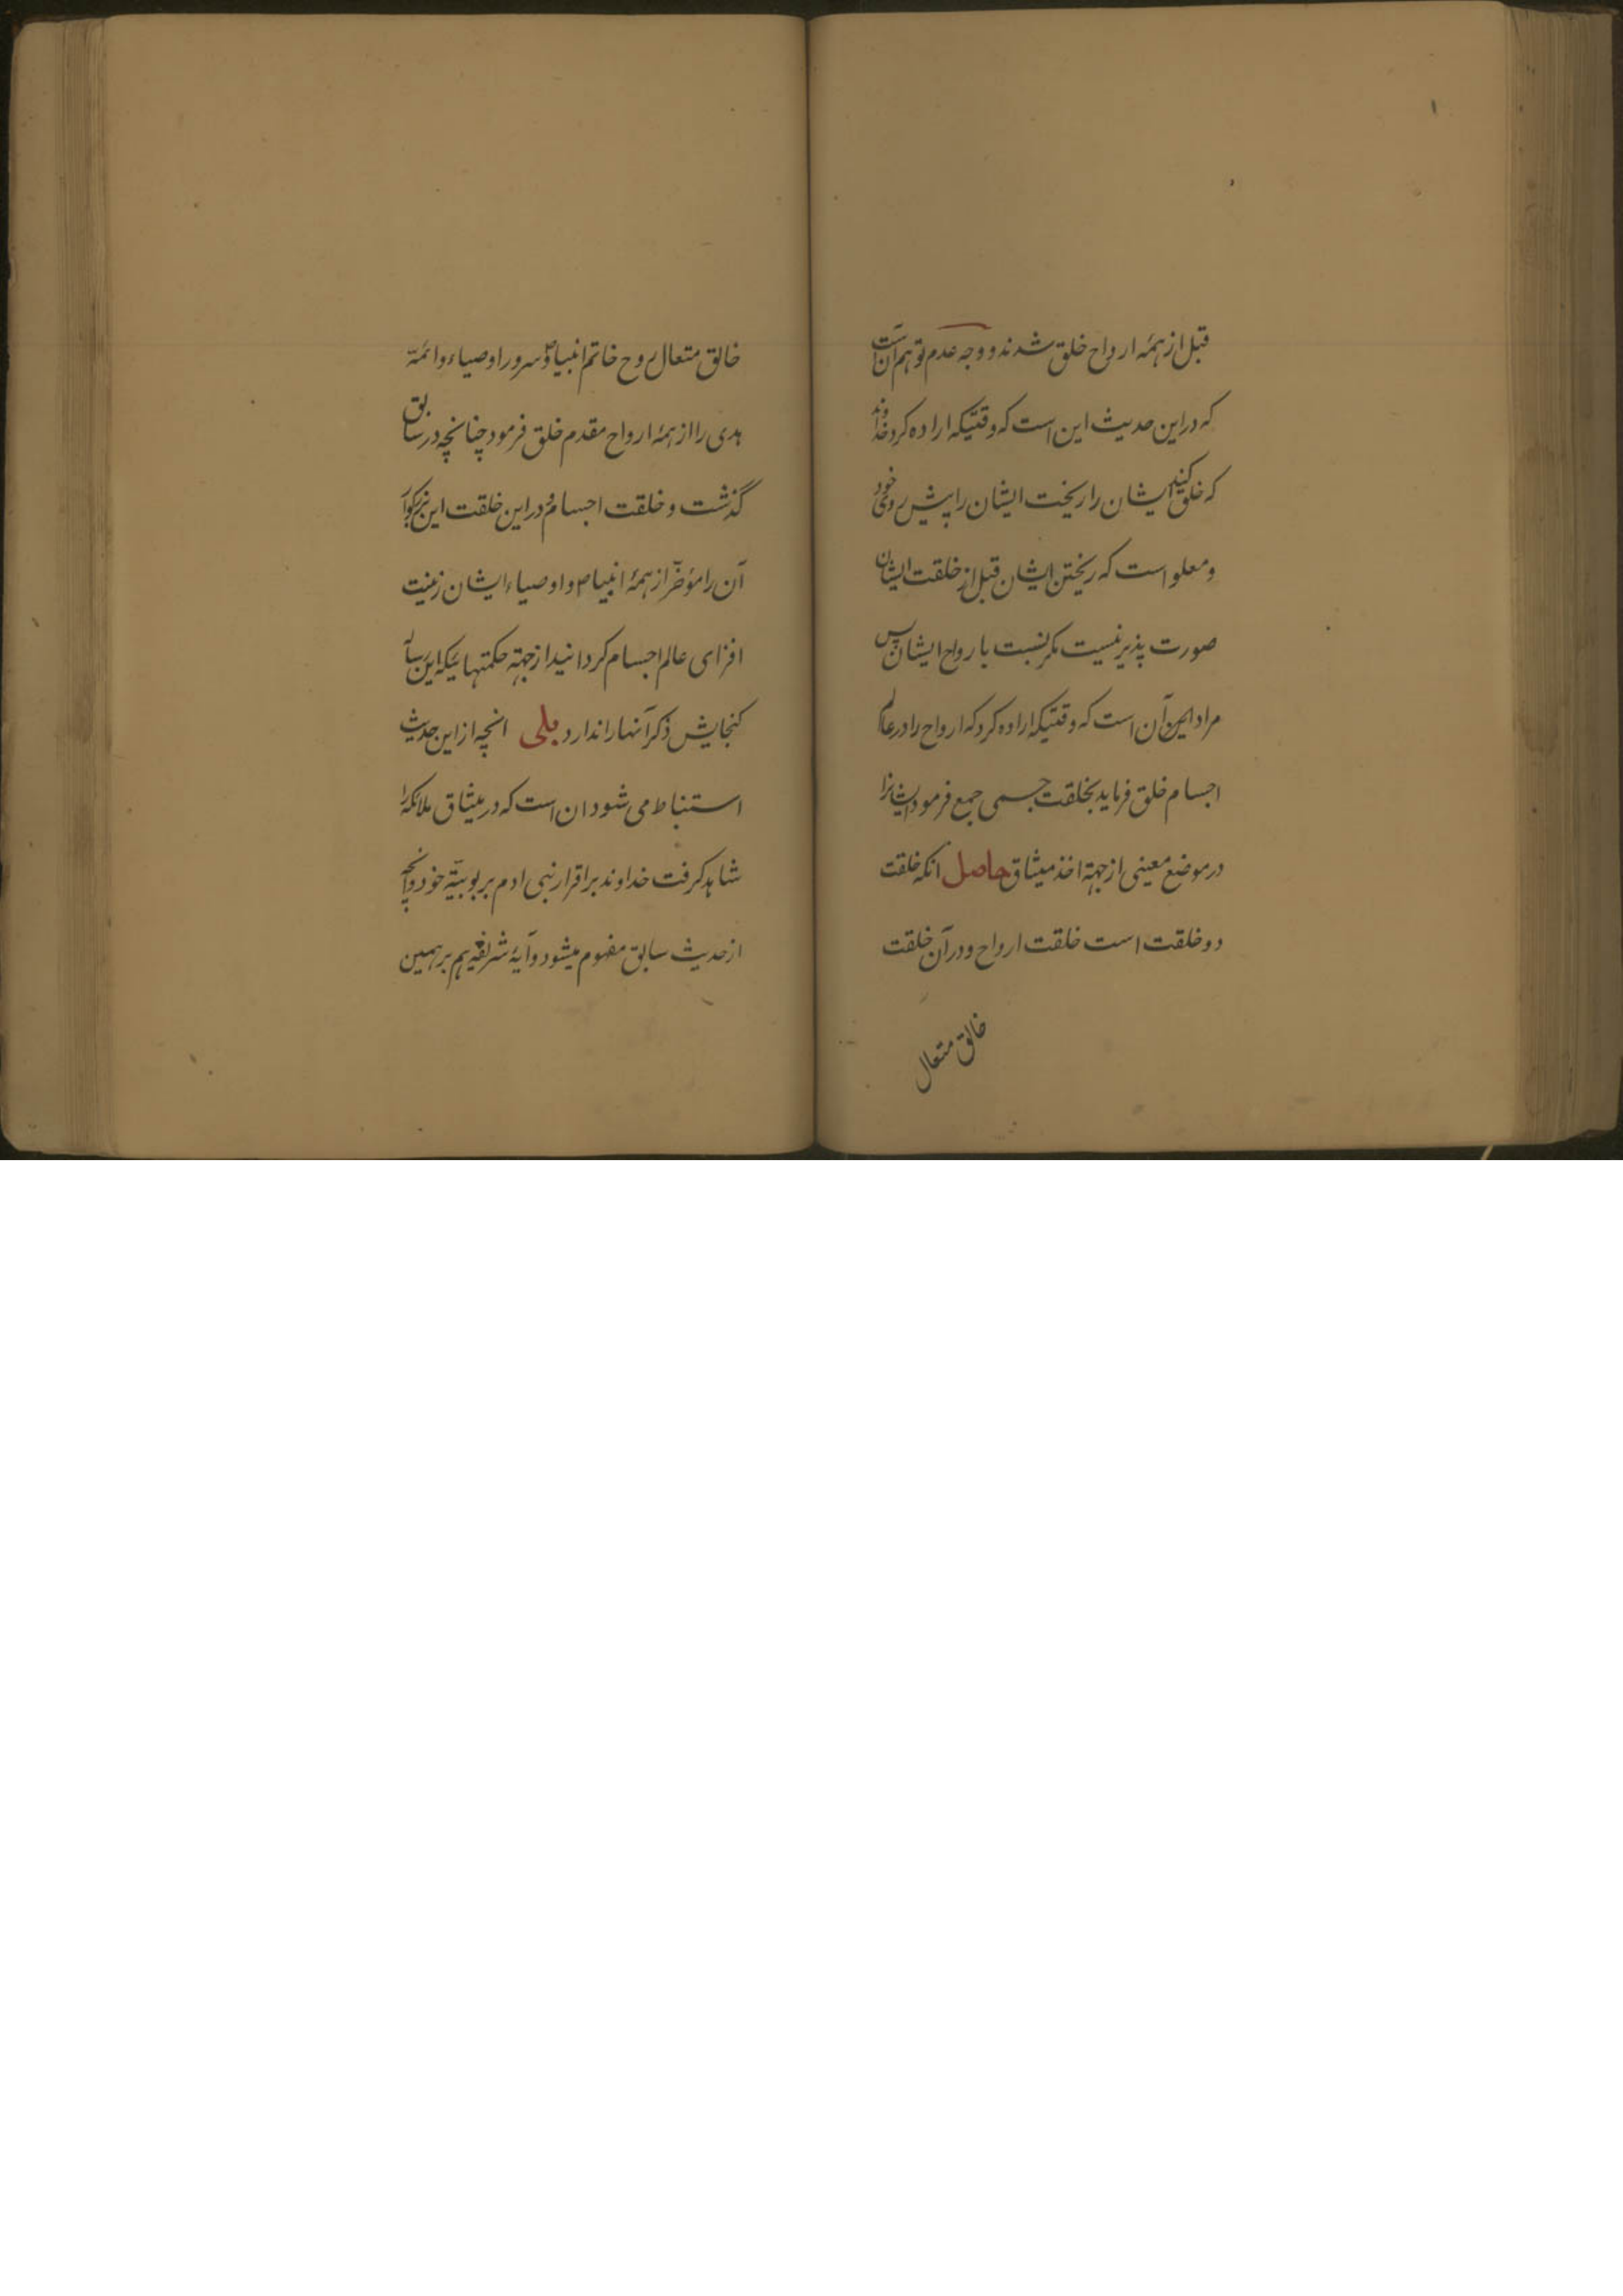 قبل از همهٔ ارواح خلق شدند و وجه عدم توهم آن است
که در این حدیث این است که وقتیکه اراده کرد خداوند
که خلق کند ایشان را ریخت ایشان را پیش روی خود
و معلو است که ریختن ایشان قبل از خلقت ایشان
صورت پذیر نیست مکر نسبت بارواح ایشان پس
مراد این آن است که وقتیکه اراده کرد که ارواح را در عالم
اجسام خلق فرماید بخلقت جسمی جمع فرمود ایشانرا
در موضع معینی از جهة اخذ میثاق حاصل انکه خلقت
دو خلقت است خلقت ارواح و در آن خلقت
خالق متعال
خالق متعال روح خاتم انبیا و سرور اوصیاء و ائمة
هدی را از همهٔ ارواح مقدم خلق فرمود چنانچه در سابق
گذشت و خلقت اجسام و در این خلقت این بزرکوار
آن را مؤخر از همهٔ انبیا و اوصیاء ایشان زینت
افزای عالم اجسام کردانید از جهة حکمتهائیکه این رساله
کنجایش ذکر آنها را ندارد بلی انچه از این حدیث
استنباط می شود ان است که در میثاق ملائکه را
شاهد کرفت خداوند بر اقرار بنی ادم بربوبیّة خود وانچه
از حدیث سابق مفهوم میشود و آیهٔ شریفه هم بر همین